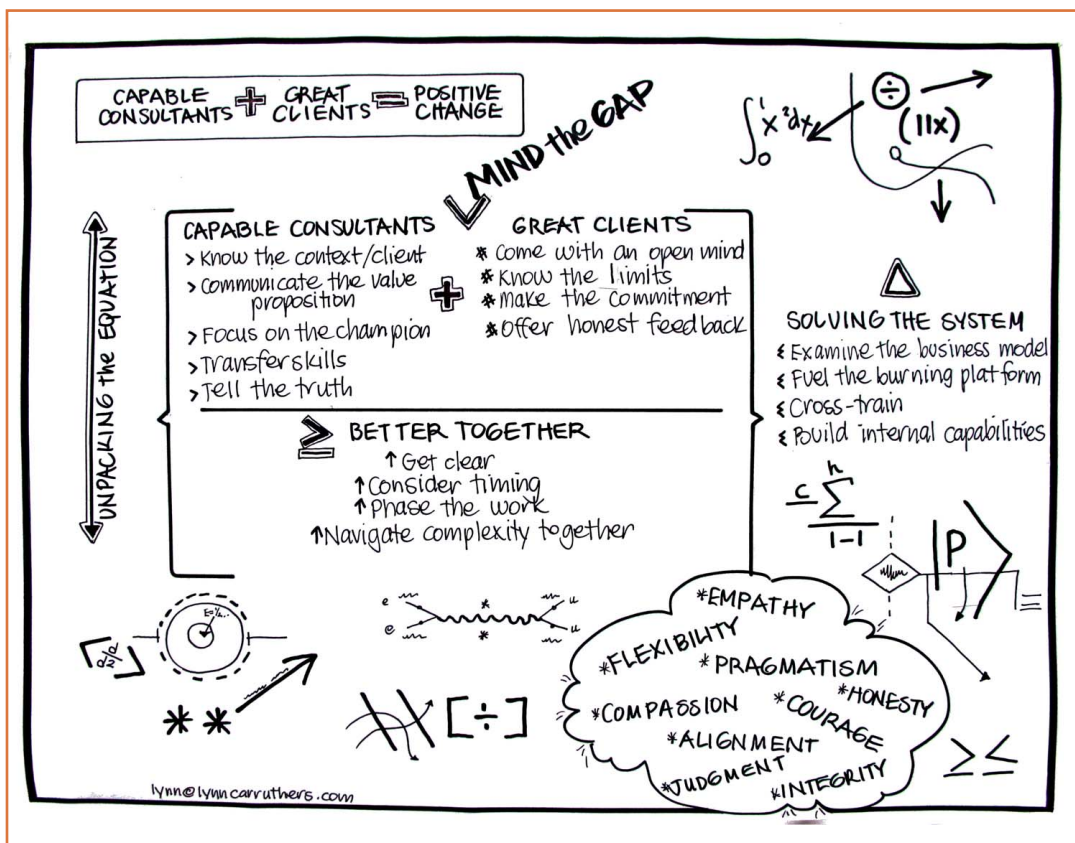 CAPABLE CONSULTANTS + GREAT CLIENTS = POSITIVE CHANGE
MIND the GAP
∫₀¹ x²dx
÷
(11x)
UNPACKING the EQUATION
CAPABLE CONSULTANTS
> Know the context/client
> Communicate the value
proposition
> Focus on the champion
> Transfer skills
> Tell the truth
+
GREAT CLIENTS
* Come with an open mind
* Know the limits
* Make the commitment
* Offer honest feedback
≥ BETTER TOGETHER
↑ Get clear
↑ Consider timing
↑ Phase the work
↑ Navigate complexity together
Δ
SOLVING THE SYSTEM
Examine the business model
Fuel the burning platform
Cross-train
Build internal capabilities
c n
∑
1-1
|P⟩
=
e u
e u
* *
[÷]
* EMPATHY
* FLEXIBILITY
* PRAGMATISM
* HONESTY
* COMPASSION
* COURAGE
* ALIGNMENT
* JUDGMENT
* INTEGRITY
≥ ≤
lynn@lynncarruthers.com